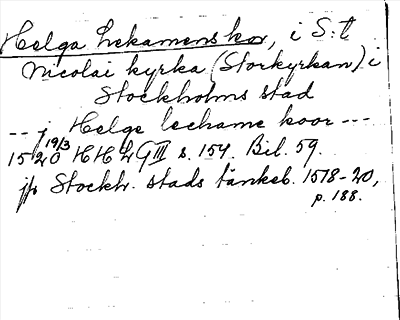 Helga Lekamens kor, i S:t
Nicolai kyrka (Storkyrkan) i
Stockholms stad
-- j Helge lechame koor ---
1520 19/3 HH LG III s. 154. Bil. 59.
jfr Stockh. stads tänkeb. 1518-20,
p. 188.